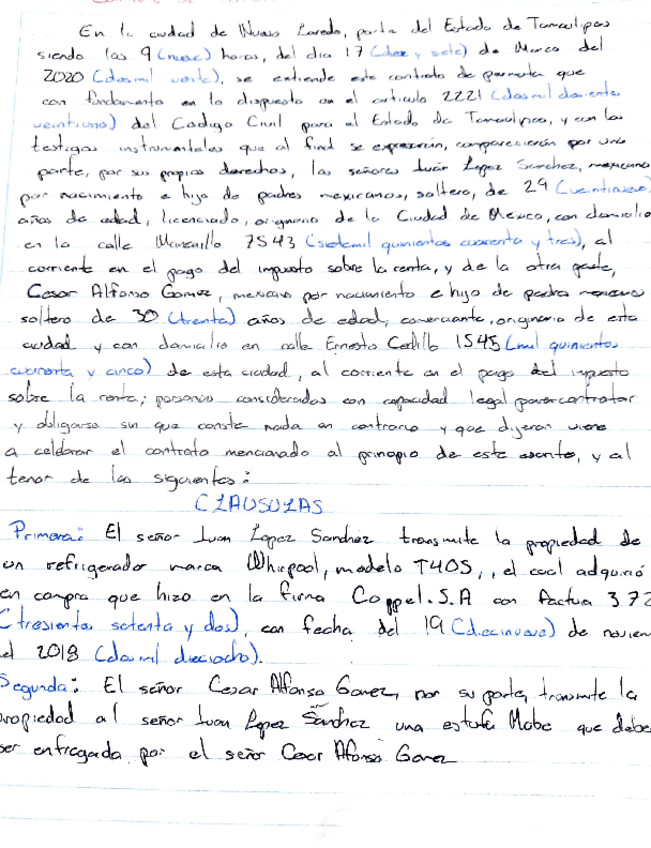 En la ciudad de Nuevo Laredo, parte del Estado de Tamaulipas
siendo las 9 (nueve) horas, del dia 17 (diez y siete) de Marzo del
2020 (dosmil veinte), se extiende este contrato de permuta que
con fundamento en lo dispuesto en el articulo 2221 (dosmil doscientos
veintiuno) del Codigo Civil para el Estado de Tamaulipas, y con los
testigos instrumentales que al final se expresarán, comparecieron por una
parte, por sus propios derechos, los señores Juan Lopez Sanchez, mexicano
por nacimiento e hijo de padres mexicanos, soltero, de 29 (veintinueve)
años de edad, licenciado, originario de la Ciudad de Mexico, con domicilio
en la calle Manzanillo 7543 (sietemil quinientos cuarenta y tres), al
corriente en el pago del impuesto sobre la renta, y de la otra parte,
Cesar Alfonso Gomez, mexicano por nacimiento e hijo de padres mexicanos
soltero de 30 (trenta) años de edad, comerciante, originario de esta
ciudad y con domicilio en calle Ernesto Cedillo 1545 (mil quinientos
cuarenta y cinco) de esta ciudad, al corriente en el pago del impuesto
sobre la renta; personas consideradas con capacidad legal para contratar
y obligarse sin que conste nada en contrario y que dijeron viene
a celebrar el contrato mencionado al principio de este escrito, y al
tenor de las siguientes:
CLAUSULAS
Primera: El señor Juan Lopez Sanchez transmite la propiedad de
un refrigerador marca Whirpool, modelo T40S,, el cual adquirió
en compra que hizo en la firma Coppel.S.A con factua 372
(tresientos setenta y dos), con fecha del 19 (diecinueve) de noviem
el 2018 (dosmil dieciocho).
Segunda: El señor Cesar Alfonso Gomez, por su parte, transmite la
ropiedad al señor Juan Lopez Sanchez una estufa Mabe que debe
ser entregada por el señor Cesar Alfonso Gomez